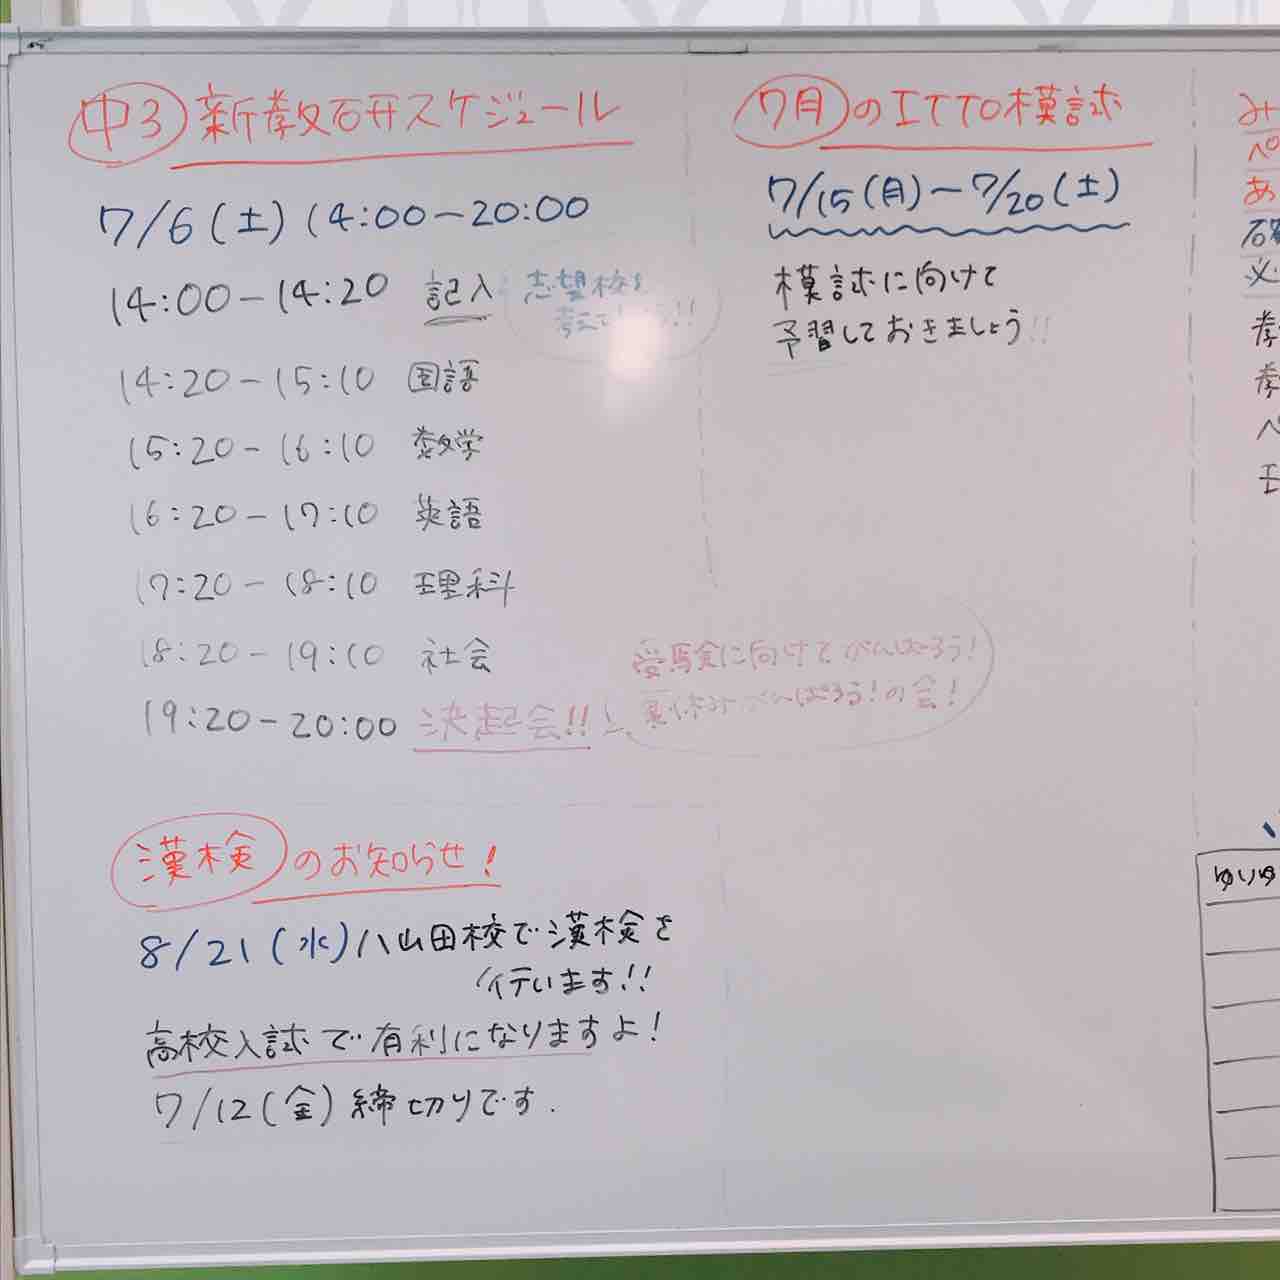 中3 新教研スケジュール
7/6(土) 14:00-20:00
14:00-14:20 記入 志望校を
考えて !!
14:20-15:10 国語
15:20-16:10 数学
16:20-17:10 英語
17:20-18:10 理科
18:20-19:10 社会
19:20-20:00 決起会!!
受験に向けてがんばろう!
夏休みがんばろう!の会!
漢検のお知らせ!
8/21(水)八山田校で漢検を
行います!!
高校入試で有利になりますよ!
7/12(金)締切りです.
7月のITTO模試
7/15(月)~7/20(土)
模試に向けて
予習しておきましょう!!
み
ペ
あ
必
ペ
ゆいゆ